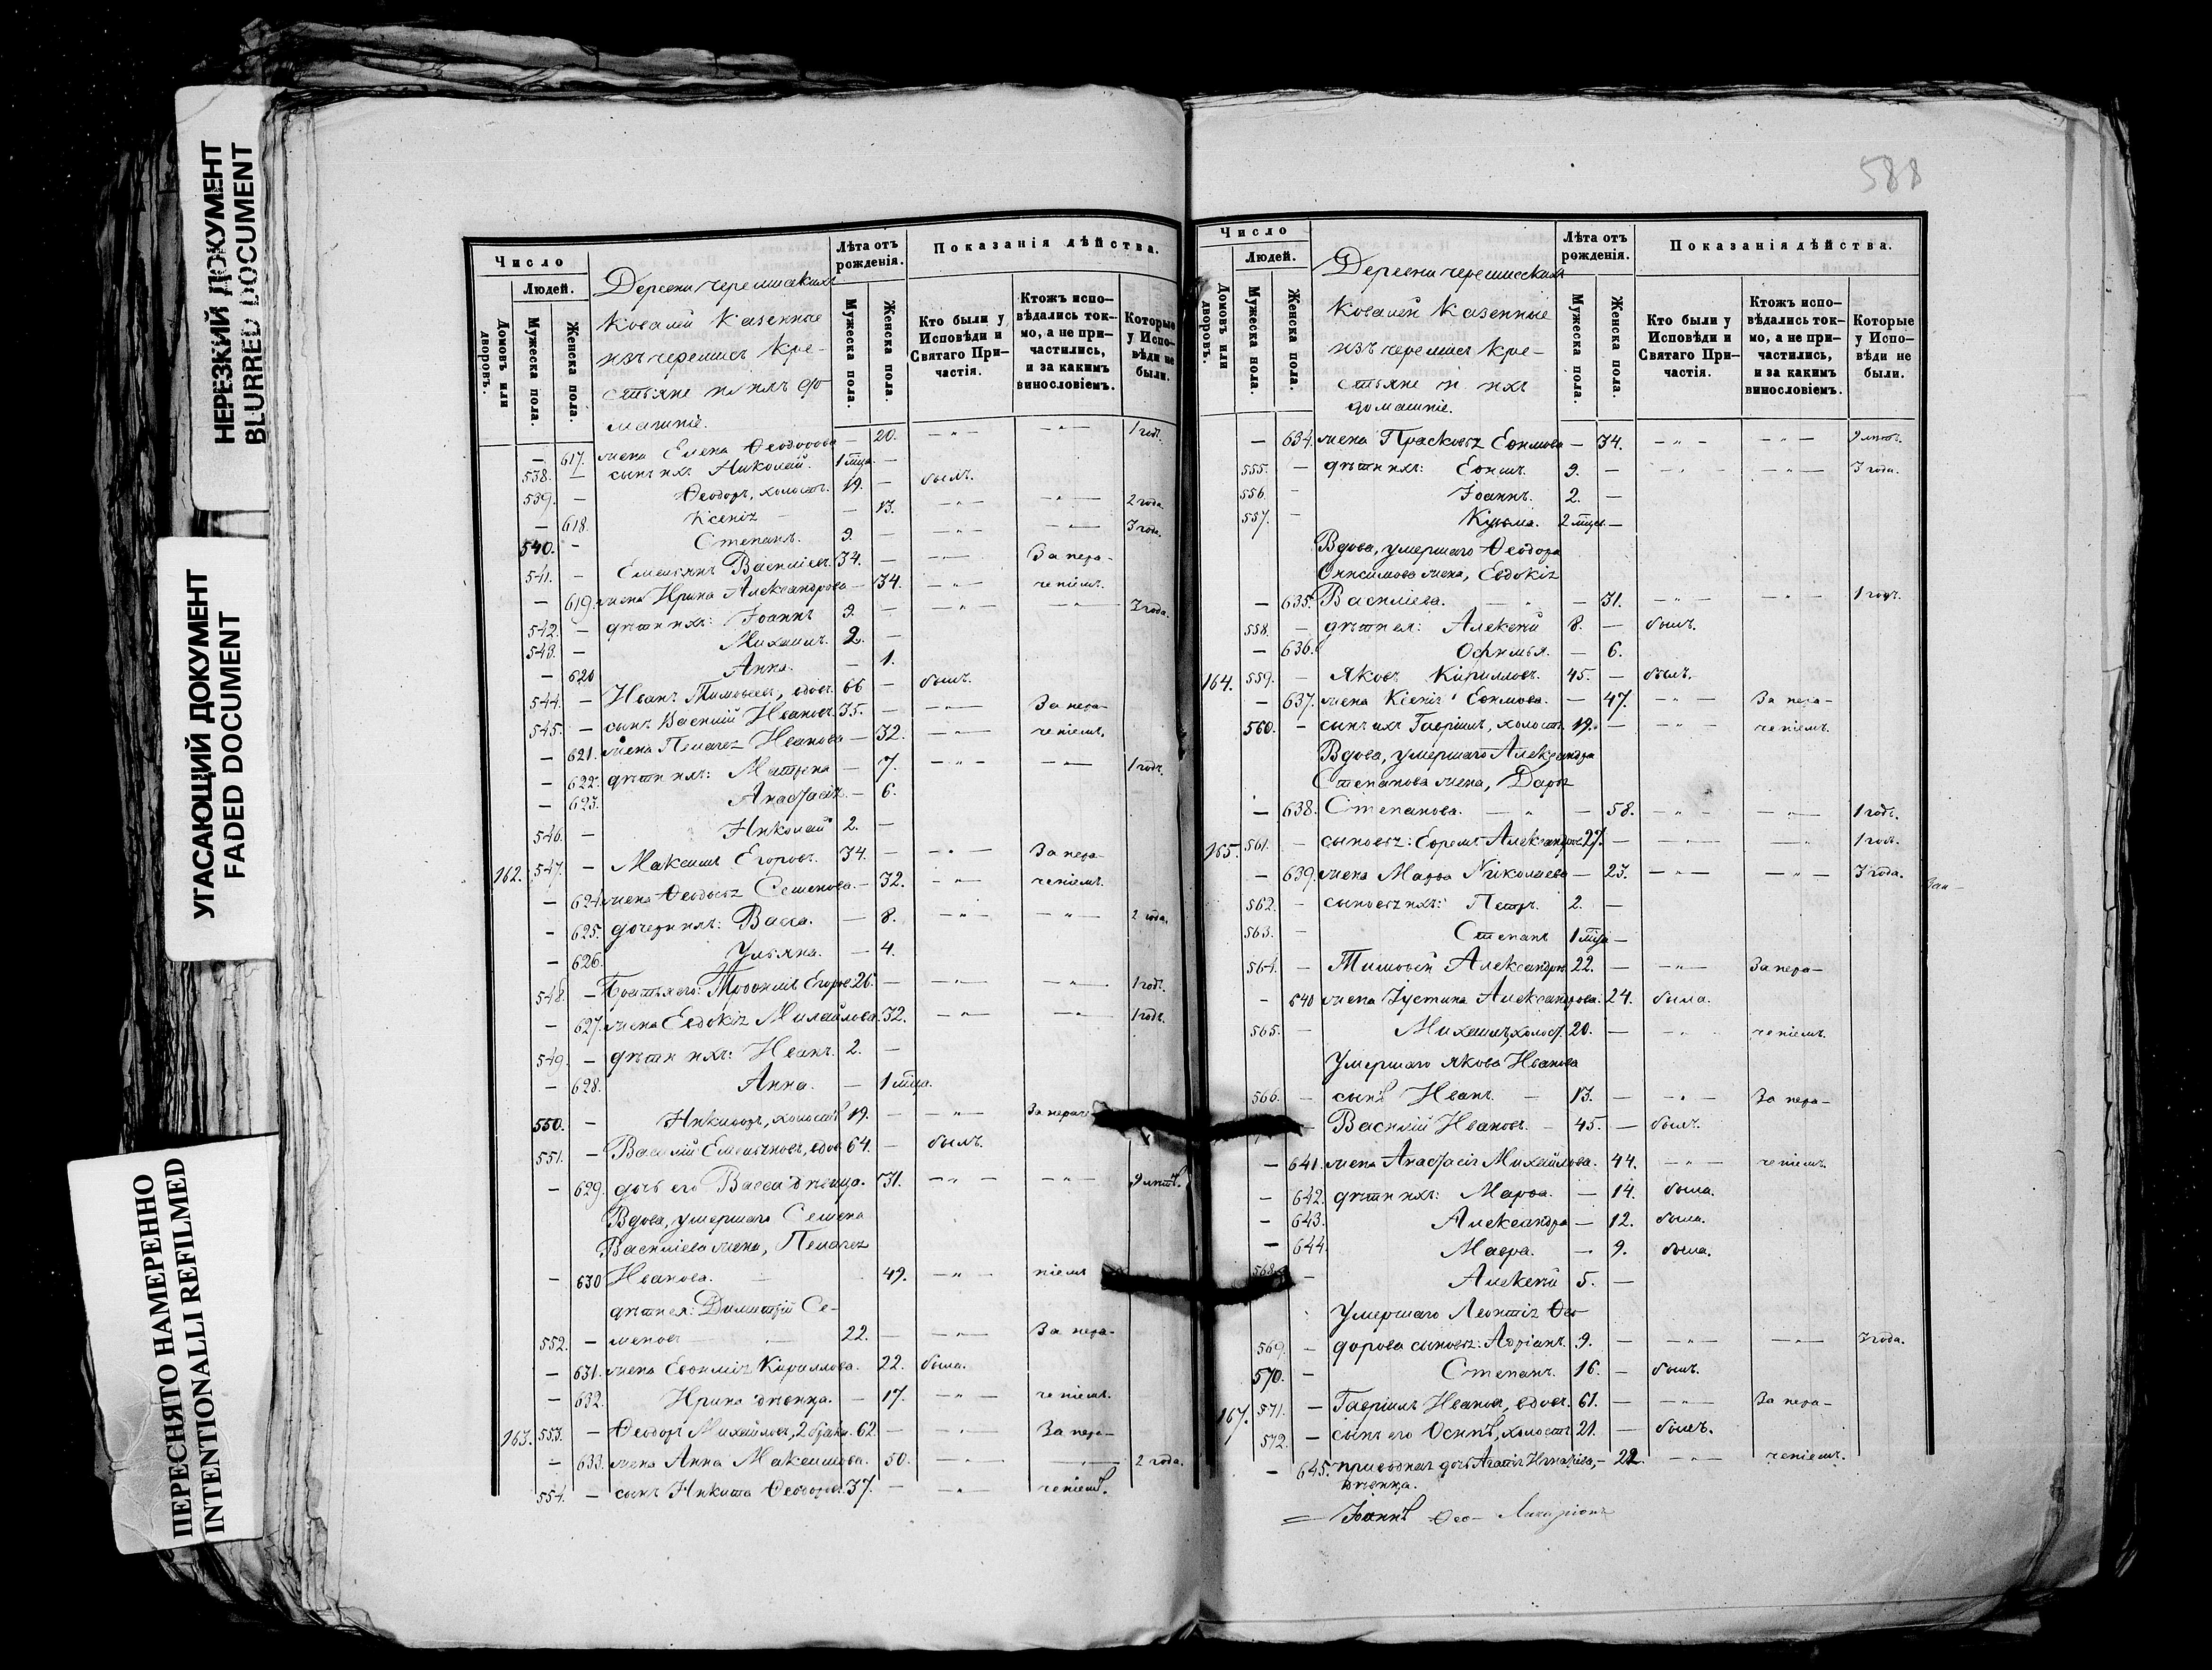 НЕРЕЗКИЙ ДОКУМЕНТ
BLURRED DOCUMENT
УГАСАЮЩИЙ ДОКУМЕНТ
FADED DOCUMENT
ПЕРЕСНЯТО НАМЕРЕННО
INTENTIONALLI REFILMED
Число
Людей.
Домовъ или дворовъ.
Мужеска пола.
Женска пола.
Деревни черемисскихъ
Ковалей Казенные
изъ черемисъ кре-
стьяне и ихъ до
машніе.
Лѣта отъ рожденія.
Мужеска пола.
Женска пола.
Показанія дѣйства.
Кто были у Исповѣди и Святаго При-частія.
Ктожъ испо-вѣдались ток-мо, а не при-частились, и за какимъ винословіемъ.
Которые у Испо-вѣди не были.
— 617. жена Елена Ѳеодорова — 20. — " — — " — 1 годъ.
538. — сынъ ихъ Николай. 1 мца. —
539. — Ѳеодоръ, холостъ. 19. — былъ.
— 618. Ксенія — 13. — " — — " — 2 года.
540. — Степанъ. 9. — — " — — " — 3 года.
541. — Емельянъ Василіевъ. 34. — — " — За нера-
— 619. жена Ирина Александрова — 34. — " — ченіемъ.
542. — дѣти ихъ: Іоаннъ 9. — — " — — " — 3 года.
543. — Михаилъ. 2. —
— 620 Анна. — 1.
544. — Иванъ Тимоѳеевъ, вдовъ. 66 — былъ.
545. — сынъ Василій Ивановъ. 35. — — " — За нера-
— 621. жена Пелагея Иванова — 32. — " — ченіемъ.
— 622. дѣти ихъ: Матрена — 7. — " — — " — 1 годъ.
— 623. Анастасія — 6.
546. — Николай 2. —
162. 547. — Максимъ Егоровъ. 34. — — " — За нера-
— 624. жена Ѳеодосья Семенова. — 32. — " — ченіемъ.
— 625. дочери ихъ: Васса. — 8. — " — — " — 2 года.
— 626. Ульяна. — 4.
548. — Братья его: Егоровъ 26. — — " — — " — 1 годъ.
— 627. жена Евдокія Михайлова. 32. — " — — " — 1 годъ.
549. — дѣти ихъ: Иванъ. 2. —
— 628. Анна. — 1 мца.
550. — Никифоръ, холостъ 19. — — " — За нераче
551. — Василій Емельяновъ, вдов 64. — былъ.
— 629. дочь его Васса дѣвица. 31. — " — — " — 9 лѣтъ.
Вдова, умершаго Семена
Василіева жена, Пелагея
— 630 Иванова. 49. — " — ніемъ
дѣти ея: Димитрій Се-
552. — меновъ — 22. — — " — За нера-
— 631. жена Евѳимія Кириллова. 22. была.
— 632. Ирина дѣвица. — 17. — " — ченіемъ.
163. 553. — Ѳеодоръ Михайловъ, 2 брака. 62. — — " — За нера-
— 633. жена Анна Максимова. 50. — " — — " — 2 года.
554. — сынъ Никита Ѳеодоровъ. 37. — — " — ченіемъ.
588
Число
Людей.
Домовъ или дворовъ.
Мужеска пола.
Женска пола.
Деревни черемисскихъ
Ковалей Казенные
изъ черемисъ кре-
стьяне и ихъ
домашніе.
Лѣта отъ рожденія.
Мужеска пола.
Женска пола.
Показанія дѣйства.
Кто были у Исповѣди и Святаго При-частія.
Ктожъ испо-вѣдались ток-мо, а не при-частились, и за какимъ винословіемъ.
Которые у Испо-вѣди не были.
— 634. жена Прасковья Ефимова — 34. — " — — " — 9 лѣтъ.
555. — дѣти ихъ: Ефимъ. 9. — — " — — " — 3 года.
556. — Іоаннъ. 2. —
557. — Кузьма. 2 мцы. —
Вдова, умершаго Ѳеодора
Онисимова жена, Евдокія
— 635. Василіева. — " — 31. — " — — " — 1 годъ.
558. — дѣти ея: Алексѣй 8. — былъ.
— 636. Офимья. — 6.
164. 559. — Яковъ Кирилловъ. 45. — былъ.
— 637. жена Ксенія Ефимова. — 47. — " — За нера-
560. — сынъ ихъ Гавріилъ, холостъ 19. — — " — ченіемъ.
Вдова, умершаго Александра
Степанова жена, Дарья
— 638. Степанова. — " — 58. — " — — " — 1 годъ.
165. 561. — сыновья: Ефремъ Александровъ 27. — — " — — " — 1 годъ.
— 639. жена Марѳа Николаева — 23. — " — — " — 3 года.
562. — сыновья ихъ: Петръ. 2. —
563. — Степанъ 1 мца —
564. — Тимоѳей Александровъ 22. — — " — За нера-
— 640 жена Іустина Александрова. 24. была.
565. — Михаилъ, холост. 20. — — " — ченіемъ.
Умершаго Якова Иванова
566. — сынъ Иванъ. — 13. — — " — За нера-
— Василій Ивановъ. — 45. — былъ.
— 641. жена Анастасія Михайлова. 44. — " — ченіемъ.
— 642. дѣти ихъ: Марѳа. — 14. была.
— 643. Александра — 12. была.
— 644. Мавра. — 9. была.
568. — Алексѣй 5. —
Умершаго Леонтія Ѳео-
569. — дорова сыновья: Адріанъ. 9. — — " — — " — 3 года.
570. — Степанъ. 16. — былъ.
167. 571. — Гавріилъ Ивановъ, вдовъ. 61. — — " — За нера-
572. — сынъ его Осипъ, холостъ 21. — былъ.
— 645. приводная дочь Агапія Игнатіева, — 22. — " — ченіемъ.
дѣвица.
Іоаннъ Ѳео-